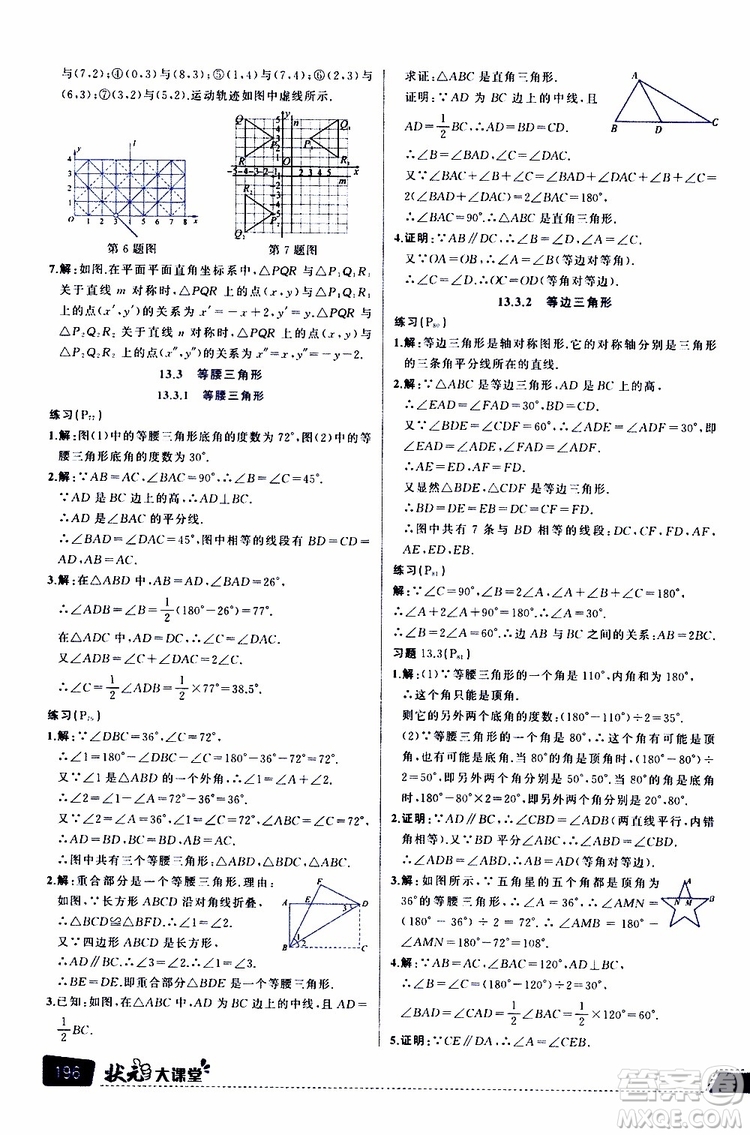 与(7,2);④(0,3)与(8,3);⑤(1,4)与(7,4);⑥(2,3)与
(6,3);⑦(3,2)与(5,2).运动轨迹如图中虚线所示.
第6题图
第7题图
7.解:如图.在平面平面直角坐标系中,△PQR与△P₁Q₁R₁
关于直线 m 对称时,△PQR 上的点(x,y)与△P₁Q₁R₁
上的点(x′,y′)的关系为 x′=-x+2,y′=y.
△PQR 与△P₂Q₂R₂ 关于直线 n 对称时,△PQR 上的点(x,y)与
△P₂Q₂R₂ 上的点(x″,y″)的关系为 x″=x,y″=-y-2.
13.3 等腰三角形
13.3.1 等腰三角形
练习(P₇₇)
1.解:图(1)中的等腰三角形底角的度数为72°,图(2)中的
等腰三角形底角的度数为30°.
2.解:∵AB=AC,∠BAC=90°,∴∠B=∠C=45°.
∵AD是BC边上的高,∴AD⊥BC.
又∵AD是∠BAC的平分线.
∴∠BAD=∠DAC=45°,图中相等的线段有BD=CD=
AD,AB=AC.
3.解:在△ABD中,AB=AD,∠BAD=26°,
∴∠ADB=∠B=1/2(180°-26°)=77°.
在△ADC中,AD=DC,∴∠C=∠DAC.
又∵∠ADB=∠C+∠DAC,
∴∠C=1/2∠ADB=1/2×77°=38.5°.
练习(P₇₉)
1.解:∵∠DBC=36°,∠C=72°,
∴∠1=180°-∠DBC-∠C=180°-36°-72°=72°.
又∵∠1是△ABD的一个外角,∴∠1=∠A+∠2.
又∵∠A=36°,∴∠2=∠1-∠A=72°-36°=36°,
∴图中共有三个等腰三角形,△ABC,△BDC,△ABD.
2.解:重合部分是一个等腰三角形.理由:
如图,长方形ABCD沿对角线折叠,
∴△BDC≌△BFD.∴∠1=∠2.
又∵四边形ABCD是长方形,
∴AD∥BC.∴∠3=∠1.∴∠3=∠2.
∴BE=DE.即重合部分是一个等腰三角形.
3.已知:如图,在△ABC中,AD为BC边上的中线,且AD=
1/2BC.
求证:△ABC是直角三角形.
证明:∵AD为BC边上的中线,且
AD=1/2BC,∴AD=BD=CD.
∴∠B=∠BAD,∠C=∠DAC.
又∵∠B+∠BAD+∠C+∠DAC=180°,
2(∠B+∠C)=180°,
∴∠B+∠C=90°,∴△ABC为直角三角形.
4.证明:∵AB∥DC,∴∠A=∠C,∠B=∠D.
又∵OA=OB,∴∠A=∠B(等边对等角),
∴∠C=∠D,∴OC=OD(等角对等边).
13.3.2 等边三角形
练习(P₈₀)
1.解:等边三角形是轴对称图形.它的对称轴分别是三角形
的三条角平分线所在的直线.
2.解:∵△ABC是等边三角形,∴∠BAC=60°.
又∵AD是BC边上的高,
∴∠EAD=∠FAD=30°.
∵∠BDE=∠CDF=60°,
又∵∠BDE=∠EAD+∠EDA,
∴∠EAD=∠EDA=30°.
∴AE=ED=BD.
又显然△BDE,△CDF是等边三角形.
∴BD=DE=BE=CD=DF=CF.
∴图中共有7条与BD相等的线段:DC,CF,FD,AF,
DE,ED,EB.
练习(P₈₁)
解:∵∠C=90°,∠B=2∠A,∠A+∠B+∠C=180°,
∴∠A+2∠A+90°=180°,∴∠A=30°.
∴∠B=2∠A=60°.边AB与BC之间的关系:AB=2BC.
习题13.3(P₈₁)
1.解:(1)∵等腰三角形的一个角是110°,内角和为180°,
∴这个角只能是顶角.
则它的另外两个底角的度数:(180°-110°)÷2=35°.
(2)∵等腰三角形的一个角是80°,∴这个角可能是顶
角,也可能是底角.当80°的角是顶角时,另外两个底角
是(180°-80°)÷2=50°,即另外两角是50°.当80°的角是底角
时,180°-80°×2=20°,即另外两角是20°,80°.
2.证明:∵AD∥BC,∴∠ADB=∠CBD(两直线平行,内错
角相等).又∵BD平分∠ABC,∴∠ABD=∠CBD,
∴∠ABD=∠ADB.∴AB=AD(等角对等边).
3.解:如图所示,∵五角星的五个角都是顶角为
36°的等腰三角形,∴每个底角的度数是
(180°-36°)÷2=72°,∴∠AMB=180°-
∠AMN=180°-72°=108°.
4.解:∵AB=AC,∠BAC=120°,AD⊥BC,
∠BAD=∠CAD=1/2∠BAC=1/2×120°=60°.
5.证明:∵CE∥DA,∴∠A=∠CEB.
196 状元大课堂
答案圈
MXQE.COM